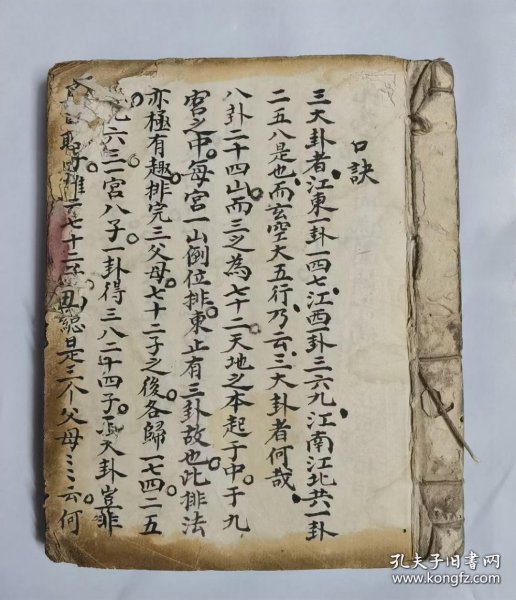 口訣
三大卦者江東一卦一四七江西一卦三六九江南江北共一卦
二五八是也而玄空大五行乃云三大卦者何哉
八卦二十四山而三之為七十二天地之本起于中于九
宮之中每宮一山倒位排東止有三卦故也此排法
亦極有趣排完三父母七十二子之後各歸一七四二五
九六三一宮八子一卦得三八二十四子三大卦豈非
七十二子總是三个父母云何
孔夫子旧书网
www.kongfz.com